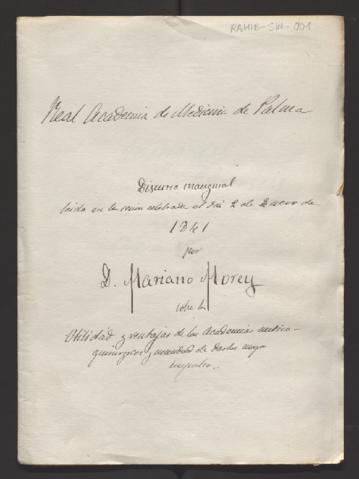 RAMIB-SIN-001
Real Academia de Medicina de Palma
Discurso inaugural
leido en la sesion celebrada el dia 2 de Enero de
1841
por
D. Mariano Morey
sobre la
Utilidad y ventajas de las Academias medico-
quirurgicas y necesidad de darles mayor
impulso.